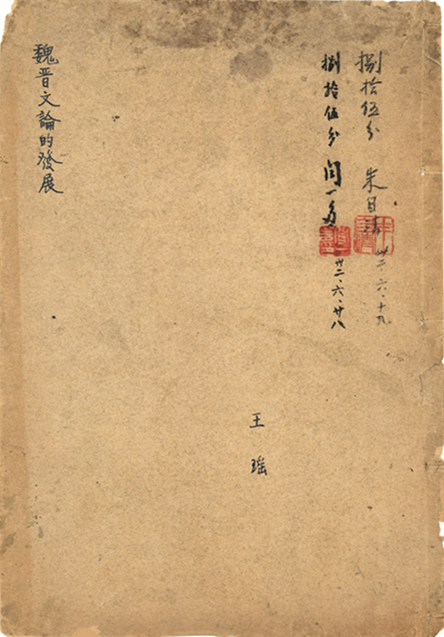 捌拾伍分 朱自清 卅二、六、十九
捌拾伍分 闻一多 卅二、六、廿八
王瑶
魏晋文論的發展